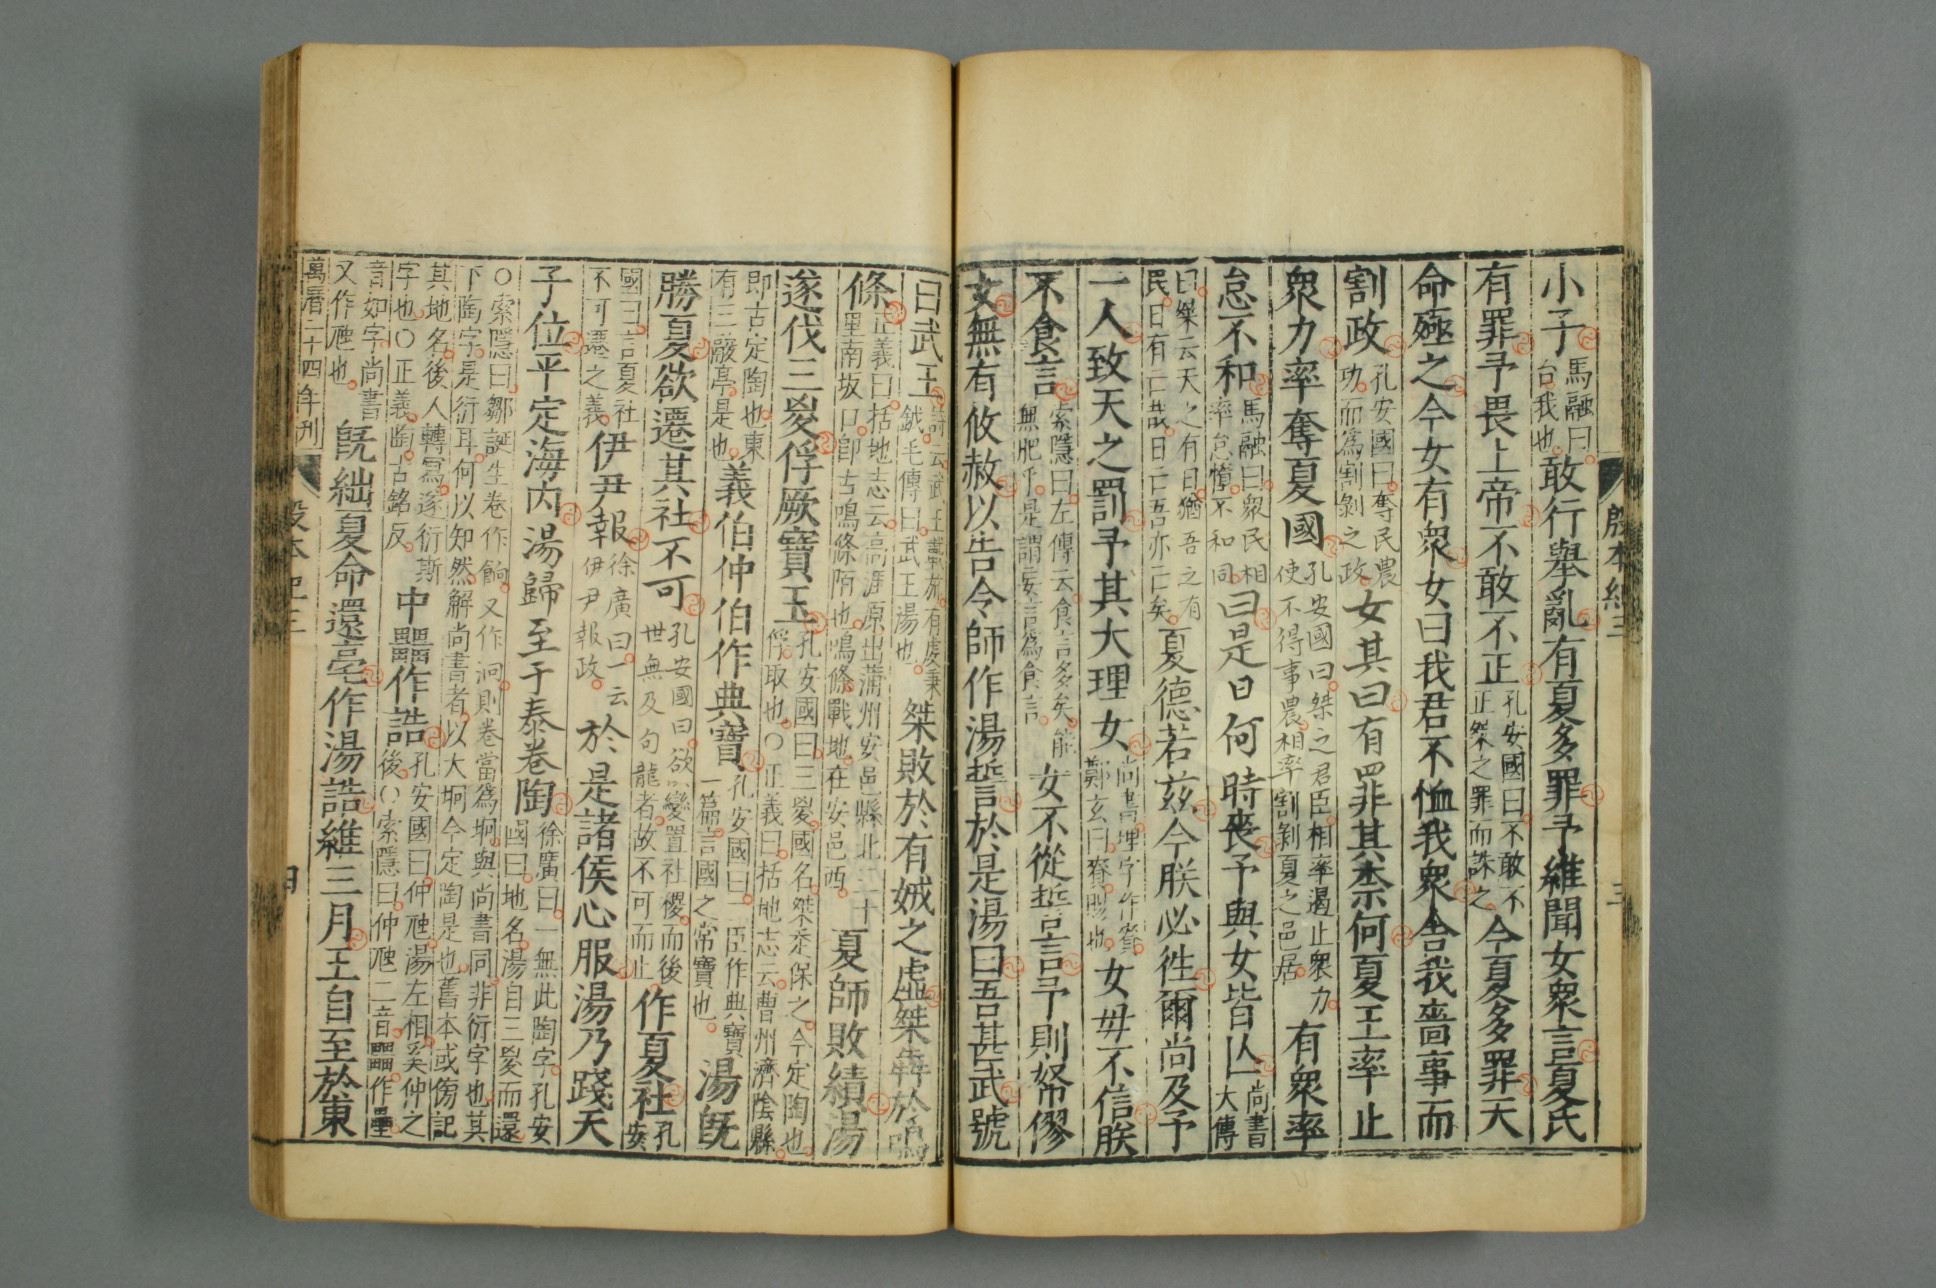 殷本紀三
三
小子馬融曰台我也敢行舉亂有夏多罪予維聞女衆言夏氏
有罪予畏上帝不敢不正孔安國曰不敢不正桀之罪而誅之今夏多罪天
命殛之今女有衆女曰我君不恤我衆舍我嗇事而
割政孔安國曰奪民農功而爲割剝之政女其曰有罪其柰何夏王率止
衆力率奪夏國孔安國曰桀之君臣相率遏止衆力使不得事農相率割剝夏之邑居有衆率
怠不和馬融曰衆民相率怠惰不和同曰是日何時喪予與女皆亾尚書大傳
曰桀云天之有日猶吾之有民日有亡哉日亡吾亦亡矣夏德若兹今朕必徃爾尚及予
一人致天之罰予其大理女尚書理字作賚鄭玄曰賚賜也女毋不信朕
不食言索隱曰左傳云食言多矣能無肥乎是謂妄言爲食言女不從誓言予則帑僇
女無有攸赦以告令師作湯誓於是湯曰吾甚武號
曰武王詩云武王載旆有虔秉鉞毛傳曰武王湯也桀敗於有娀之虛桀犇於鳴
條正義曰括地志云高涯原出蒲州安邑縣北三十里南坂口卽古鳴條陌也鳴條戰地在安邑西夏師敗績湯
遂伐三㚇俘厥寶玉孔安國曰三㚇國名桀走保之今定陶也俘取也〇正義曰括地志云曹州濟陰縣
即古定陶也東有三鬷亭是也義伯仲伯作典寶孔安國曰二臣作典寶一篇言國之常寶也湯旣
勝夏欲遷其社不可孔安國曰欲變置社稷而後世無及句龍者故不可而止作夏社孔安
國曰言夏社不可遷之義伊尹報徐廣曰一云伊尹報政於是諸侯心服湯乃踐天
子位平定海內湯歸至于泰卷陶徐廣曰一無此陶字孔安國曰地名湯自三㚇而還
〇索隱曰鄒誕生卷作餉又作泂則卷當爲坰與尚書同非衍字也其下陶字是衍耳何以知然解尚書者以大坰今定陶是也舊本或傍記
其地名後人轉寫遂衍斯字也〇正義陶古銘反中𤳳作誥孔安國曰仲虺湯左相奚仲之後〇索隱曰仲虺二音𤳳作壘
音如字尚書又作虺也旣絀夏命還亳作湯誥維三月王自至於東
萬曆二十四年刊
殷本紀三
四